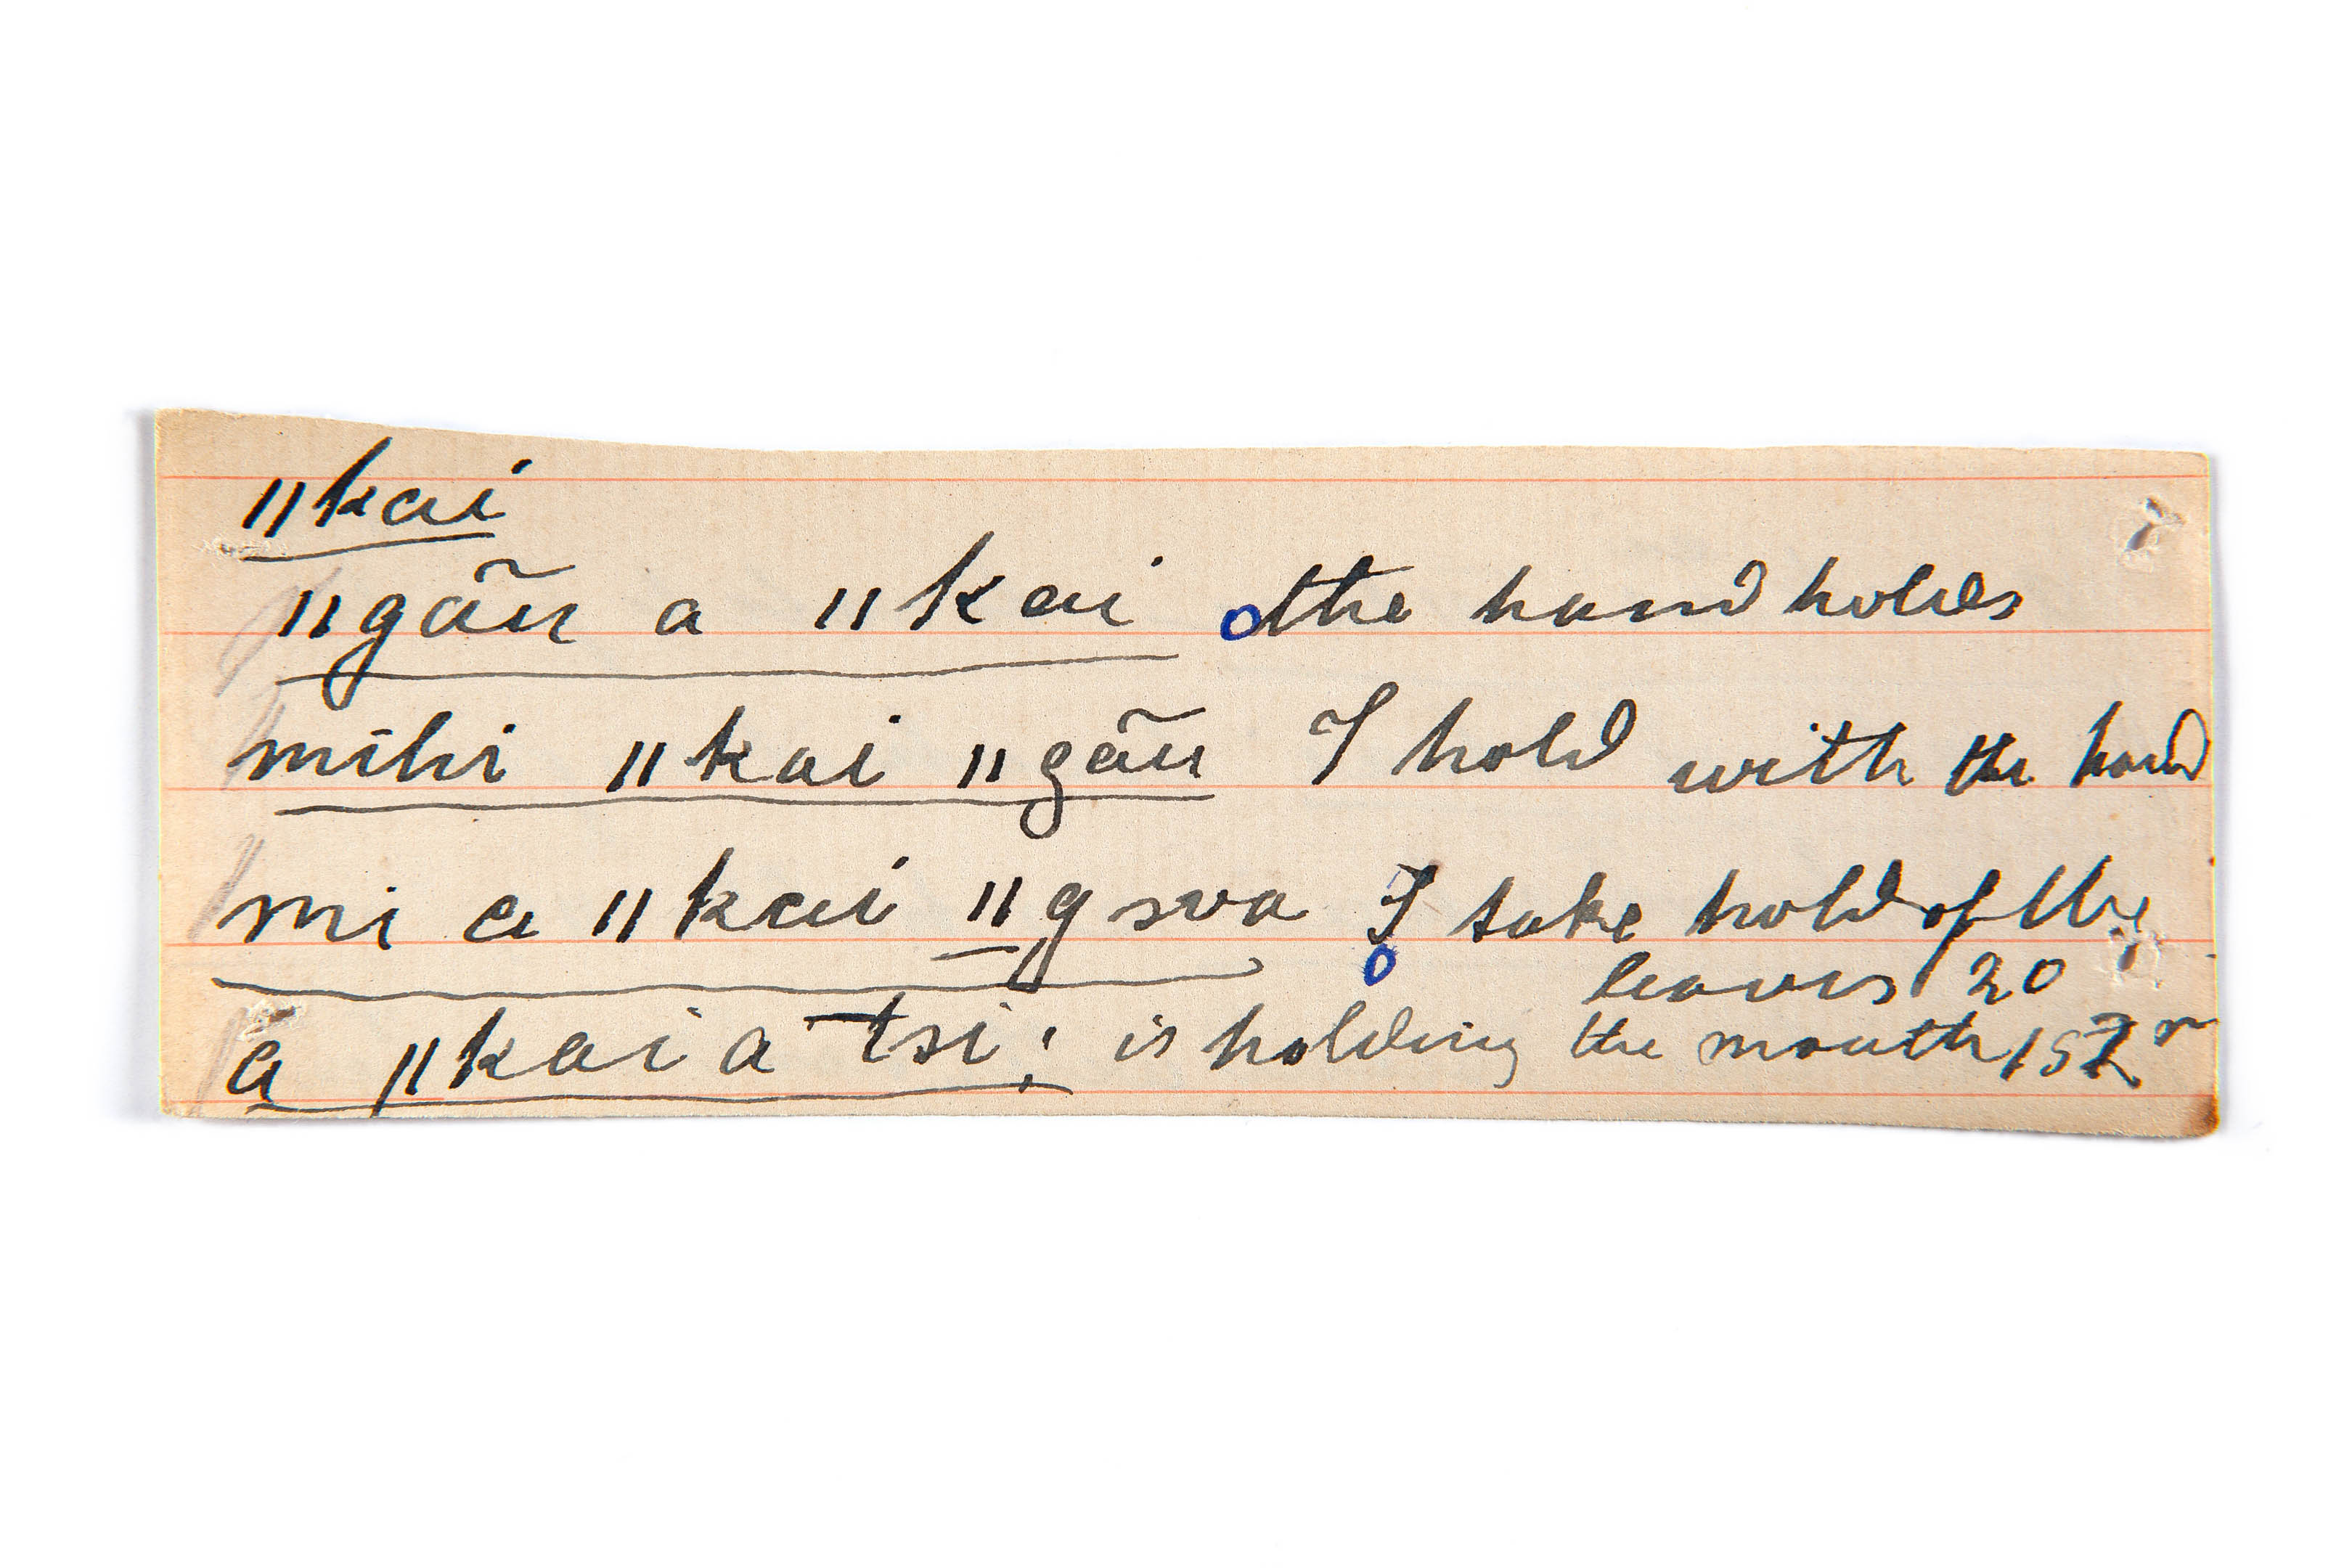 ǁkai
ǁgãu a ǁkai the hand holds
mihi ǁkai ǁgãu I hold with the hand
mi a ǁkai ǁgswa I take hold of the
leaves 20
a ǁkai a tsi; is holding the mouth 152